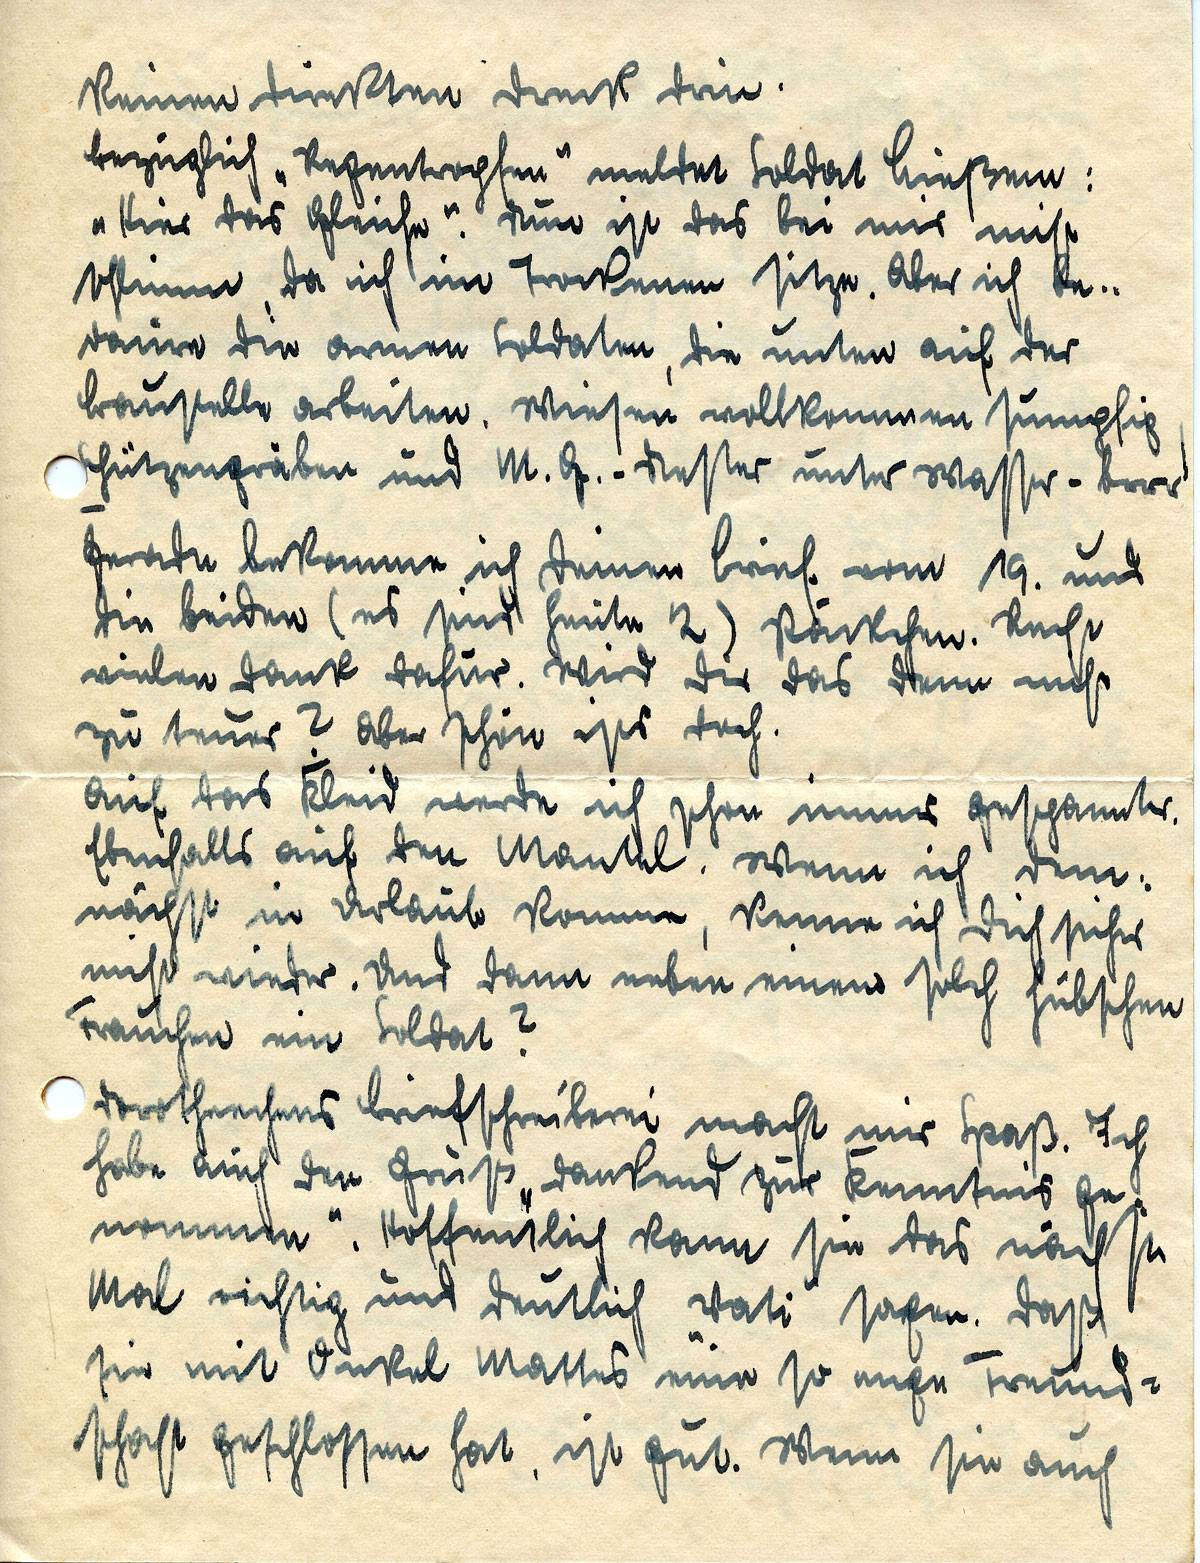 keinen direkten Dreck drin.
Bezüglich „Regentropfen“ meldet Soldat
„Hier das Gleiche“. Nun ist das bei mir nicht
schlimm, da ich im Trockenen sitze. Aber ich be-
daure die armen Soldaten, die unten auf der
Baustelle arbeiten. Wiesen vollkommen sumpfig,
Schützengräben und M.G.-Nester unter Wasser - brrr
Gerade bekomme ich Deinen Brief vom 19. und
die beiden (es sind heute 2) Päckchen. Recht
vielen Dank dafür. Wird Dir das denn nicht
zu teuer? Aber schön ists doch.
Auf das Kleid werde ich schon immer gespannter.
Ebenfalls auf den Mantel. Wenn ich dem-
nächst in Urlaub komme, kenne ich Dich sicher
nicht wieder. Und dann neben einem solch hübschen
Frauchen ein Soldat?
Dorotheechens Briefschreiberei macht mir Spaß. Ich
habe auch den Gruß „dankend zur Kenntnis ge-
nommen“. Hoffentlich kann sie das nächste
Mal richtig und deutlich „Vati“ sagen. Daß
sie mit Onkel Mattes eine so enge Freund-
schaft geschlossen hat, ist gut. Wenn sie auch